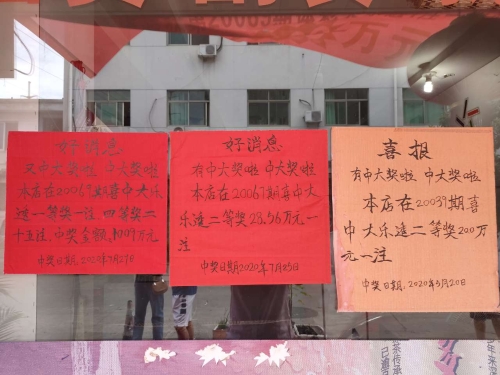 好消息
又中大奖啦 中大奖啦
本店在20069期喜中大乐
透一等奖一注,四等奖二
十五注,中奖金额,1009万元
中奖日期:2020年7月27日
好消息
有中大奖啦 中大奖啦
本店在20067期喜中大
乐透二等奖28.56万元一
注
中奖日期2020年7月25日
喜报
有中大奖啦 中大奖啦
本店在20039期喜
中大乐透二等奖200万
元一注
中奖日期:2020年5月20日